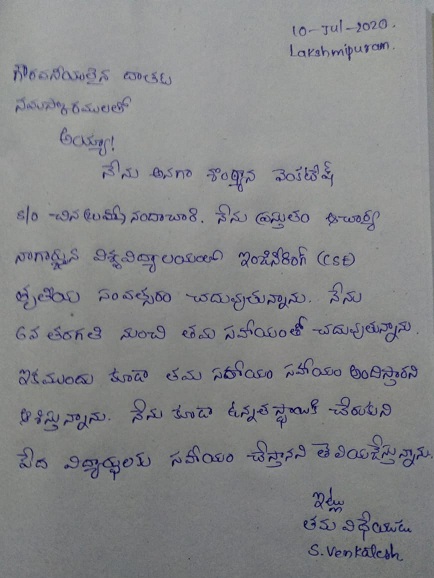 10-Jul-2020.
Lakshmipuram.
గౌరవనీయులైన దాతకు
నమస్కారములతో
అయ్యా!
నేను అనగా వెంకటేష్
S/o చిన నందాచారి. నేను ప్రస్తుతం ఆచార్య
నాగార్జున విశ్వవిద్యాలయంలో ఇంజనీరింగ్ (CSE)
తృతీయ సంవత్సరం చదువుతున్నాను. నేను
6వ తరగతి నుంచి తమ సహాయంతో చదువుతున్నాను.
ఇకముందు కూడా తమ సహాయం సహాయం అందిస్తారని
ఆశిస్తున్నాను. నేను కూడా ఉన్నత స్థాయికి చేరుకుని
పేద విద్యార్థులకు సహాయం చేస్తానని తెలియజేస్తున్నాను.
ఇట్లు
తమ విధేయుడు
S.Venkatesh